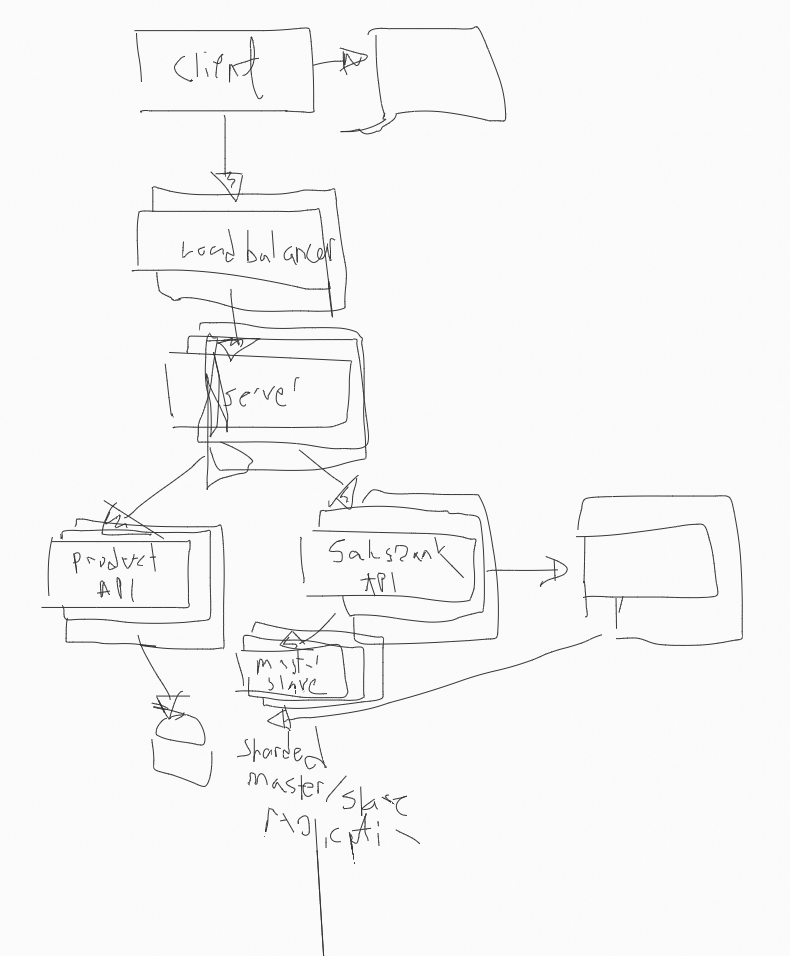 client
Load balancer
server
product
API
SalesRank
API
master
slave
sharded
master/slave